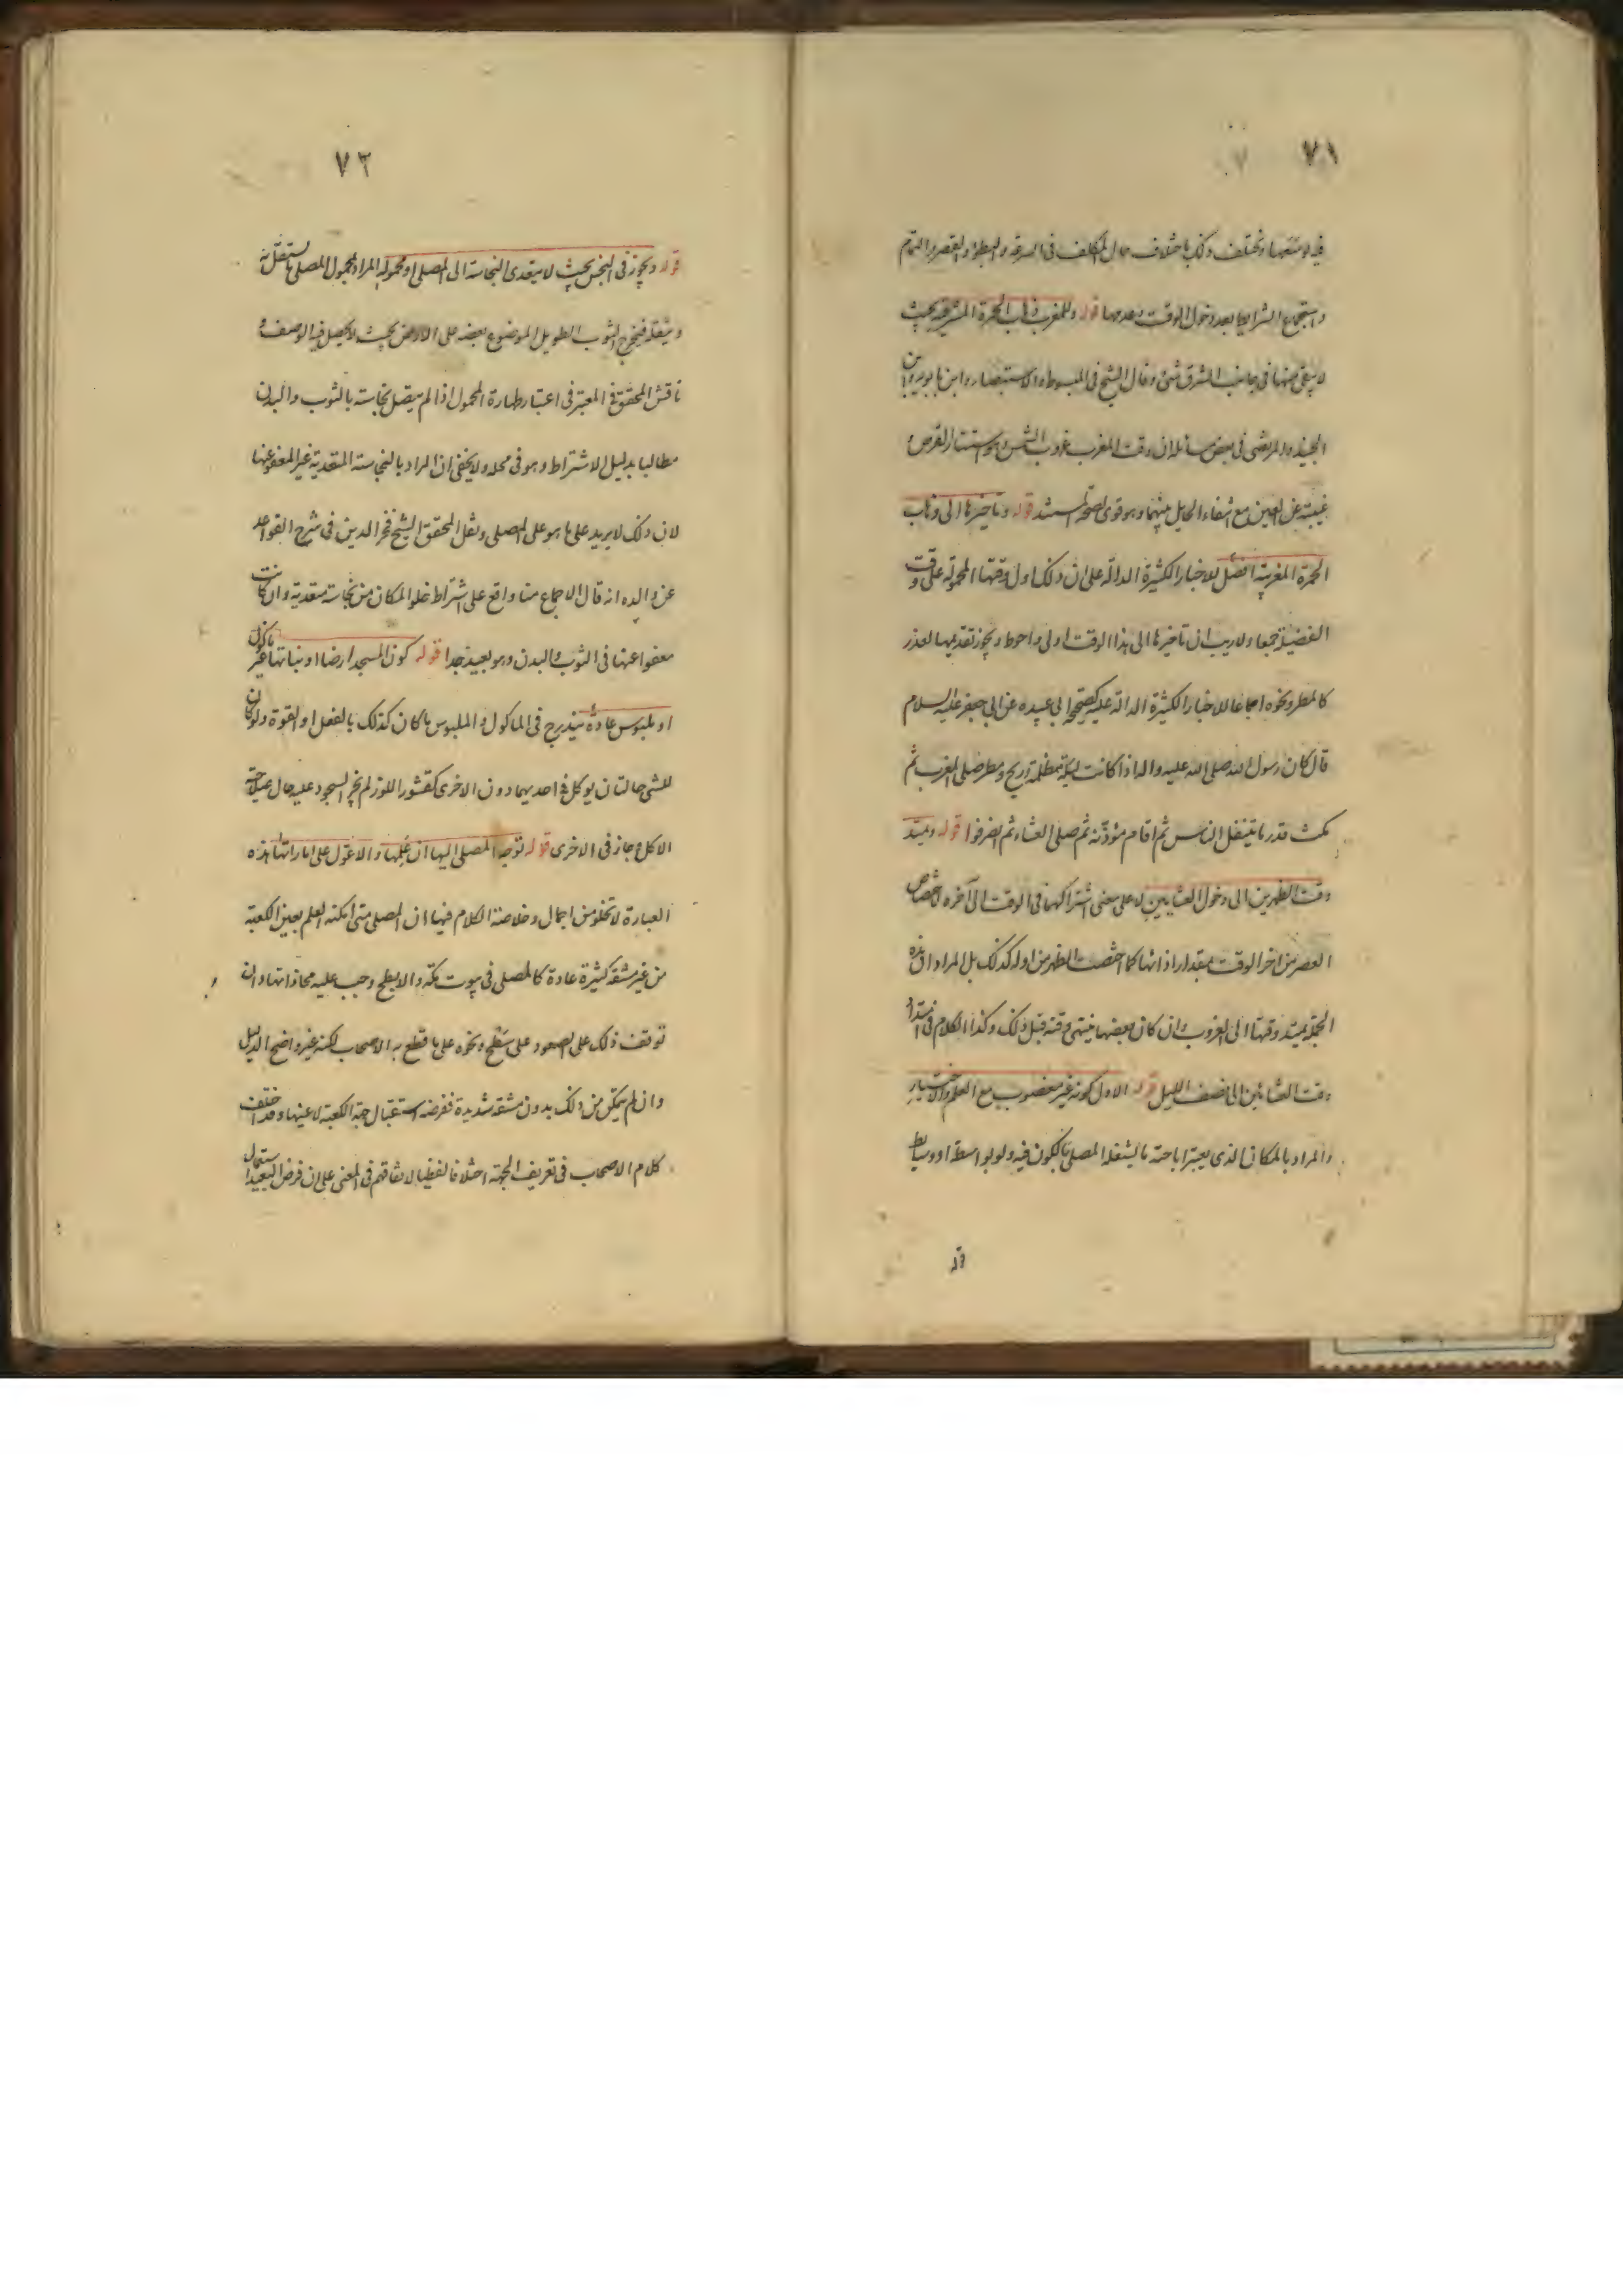 ٧١
فيه لا متيقنها وتختلف ذلك باختلاف حال المكلف في السرعة والبطؤ والقصر والتمام
واستجماع الشرايط بعد دخول الوقت وعدمها قوله وللمغرب ذهاب الحمرة المشرقية بحيث
لا يبقى منها في جانب الشرق شئ وقال الشيخ في المبسوط والاستبصار وابن بابويه وابن
الجنيد والمرتضى في بعض مسائله ان وقت المغرب غروب الشمس وهو استتار القرص و
غيبته عن العين مع انتفاء الحايل بينهما وهو قوى لصحة المستند قوله وتأخيرها الى ذهاب
الحمرة المغربية افضل للاخبار الكثيرة الدالة على ان ذلك اول وقتها المحمولة على وقت
الفضيلة جمعا ولا ريب ان تأخيرها الى هذا الوقت اولى واحوط ويجوز تقديمها لعذر
كالمطر ونحوه اجماعا للاخبار الكثيرة الدالة عليه كصحيحة ابى عبيده عن ابى جعفر عليه السلام
قال كان رسول الله صلى الله عليه واله اذا كانت ليلة مظلمة وريح ومطر صلى المغرب ثم
مكث قدر ما يتنفل الناس ثم اقام مؤذنه ثم صلى العشاء ثم انصرفوا قوله ويمتد
وقت الظهرين الى دخول العشائين لا على معنى اشتراكهما في الوقت الى آخره لاختصاص
العصر من اخر الوقت بمقدار اذائها كما اختصت الظهر من اوله كذلك بل المراد ان هذه
الجملة يمتد وقتها الى الغروب وان كان بعضها ينتهى وقته قبل ذلك وكذا الكلام في امتداد
وقت العشائين الى نصف الليل قوله الاول كونه غير مغصوب مع العلم والاختيار
والمراد بالمكان الذى يعتبر اباحته ما يشغله المصلى بالكون فيه ولو بواسطة او وسائط
قوله
٧٢
قوله ويجوز في النجس بحيث لا يتعدى النجاسة الى المصلى او محموله المراد بمحمول المصلى ما يستقل به
وينقله فيخرج الثوب الطويل الموضوع بعضه على الارض بحيث لا يحصل فيه الوصف و
ناقش المحقق في المعتبر في اعتبار طهارة المحمول اذا لم يتصل نجاسته بالثوب والبدن
مطالبا بدليل الاشتراط وهو في محله ولا يخفى ان المراد بالنجاسة المتعدية غير المعفو عنها
لان ذلك لا يزيد على ما هو على المصلى ونقل المحقق الشيخ فخر الدين في شرح القواعد
عن والده انه قال الاجماع منا واقع على اشتراط خلو المكان من نجاسة متعدية وان كانت
معفوا عنها في الثوب والبدن وهو بعيد جدا قوله كون المسجد ارضا او نباتها غير ماكول
او ملبوس عادة يندرج في الماكول والملبوس ما كان كذلك بالفعل او القوة ولو كان
للشئ حالتان يوكل في احديهما دون الاخرى كقشور اللوز لم يجز السجود عليه حال صلاحية
الاكل وجاز في الاخرى قوله توجه المصلى اليها ان علمها والا عول على اماراتها هذه
العبارة لا تخلو من اجمال وخلاصة الكلام فيها ان المصلى متى امكنه العلم بعين الكعبة
من غير مشقة كثيرة عادة كالمصلى في بيوت مكة والابطح وجب عليه محاذاتها وان
توقف ذلك على الصعود على سطح ونحوه على ما قطع به الاصحاب لكنه غير واضح الدليل
وان لم يتمكن من ذلك بدون مشقة شديدة ففرضه استقبال جهة الكعبة لا عينها وقد اختلف
كلام الاصحاب في تعريف الجهة اختلافا لفظيا لاتفاقهم في المعنى على ان فرض البعيد استعمال